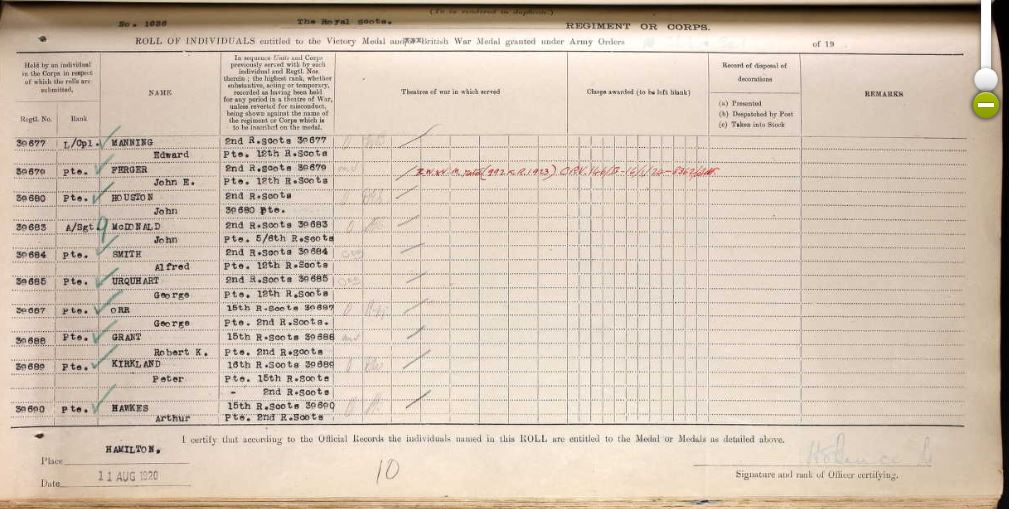 (To be rendered in duplicate.)
No. 1036 The Royal Scots. REGIMENT OR CORPS.
ROLL OF INDIVIDUALS entitled to the Victory Medal and British War Medal granted under Army Orders of 19
Held by an individual in the Corps in respect of which the rolls are submitted.
Regtl. No. Rank
NAME
In sequence Units and Corps previously served with by each individual and Regtl. Nos. therein; the highest rank, whether substantive, acting or temporary, recorded as having been held for any period in a theatre of War, unless reverted for misconduct, being shown against the name of the regiment or Corps which is to be inscribed on the medal.
Theatres of war in which served
Clasps awarded (to be left blank)
Record of disposal of decorations
(a) Presented
(b) Despatched by Post
(c) Taken into Stock
REMARKS
39677 L/Cpl. MANNING 2nd R.Scots 39677
Edward Pte. 12th R.Scots
39679 Pte. FERGER 2nd R.Scots 39679 (992 K.R. 1923)
John E. Pte. 12th R.Scots
39680 Pte. HOUSTON 2nd R.Scots
John 39680 Pte.
39683 A/Sgt McDONALD 2nd R.Scots 39683
John Pte. 5/6th R.Scots
39684 Pte. SMITH 2nd R.Scots 39684
Alfred Pte. 12th R.Scots
39685 Pte. URQUHART 2nd R.Scots 39685
George Pte. 12th R.Scots
39687 Pte. ORR 15th R.Scots 39687
George Pte. 2nd R.Scots.
39688 Pte. GRANT 15th R.Scots 39688
Robert K. Pte. 2nd R.Scots
39689 Pte. KIRKLAND 16th R.Scots 39689
Peter Pte. 15th R.Scots
- 2nd R.Scots
39690 Pte. HAWKES 15th R.Scots 39690
Arthur Pte. 2nd R.Scots
I certify that according to the Official Records the individuals named in this ROLL are entitled to the Medal or Medals as detailed above.
Place HAMILTON.
Date 11 AUG 1920
10
Signature and rank of Officer certifying.